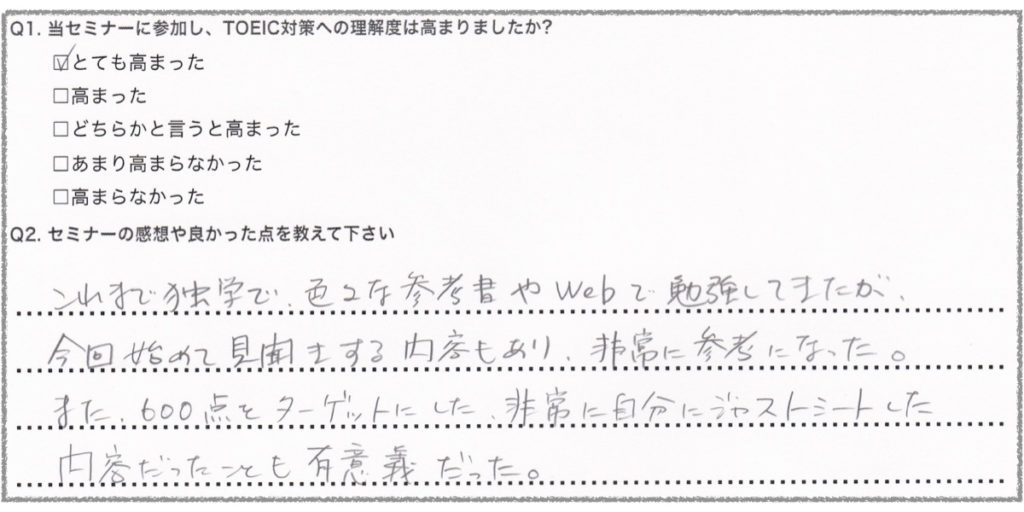 Q1. 当セミナーに参加し、TOEIC対策への理解度は高まりましたか?
☑とても高まった
□高まった
□どちらかと言うと高まった
□あまり高まらなかった
□高まらなかった
Q2. セミナーの感想や良かった点を教えて下さい
これまで独学で、色々な参考書やWebで勉強してきたが、
今回始めて見聞きする内容もあり、非常に参考になった。
また、600点をターゲットにした、非常に自分にジャストミートした
内容だったことも有意義だった。